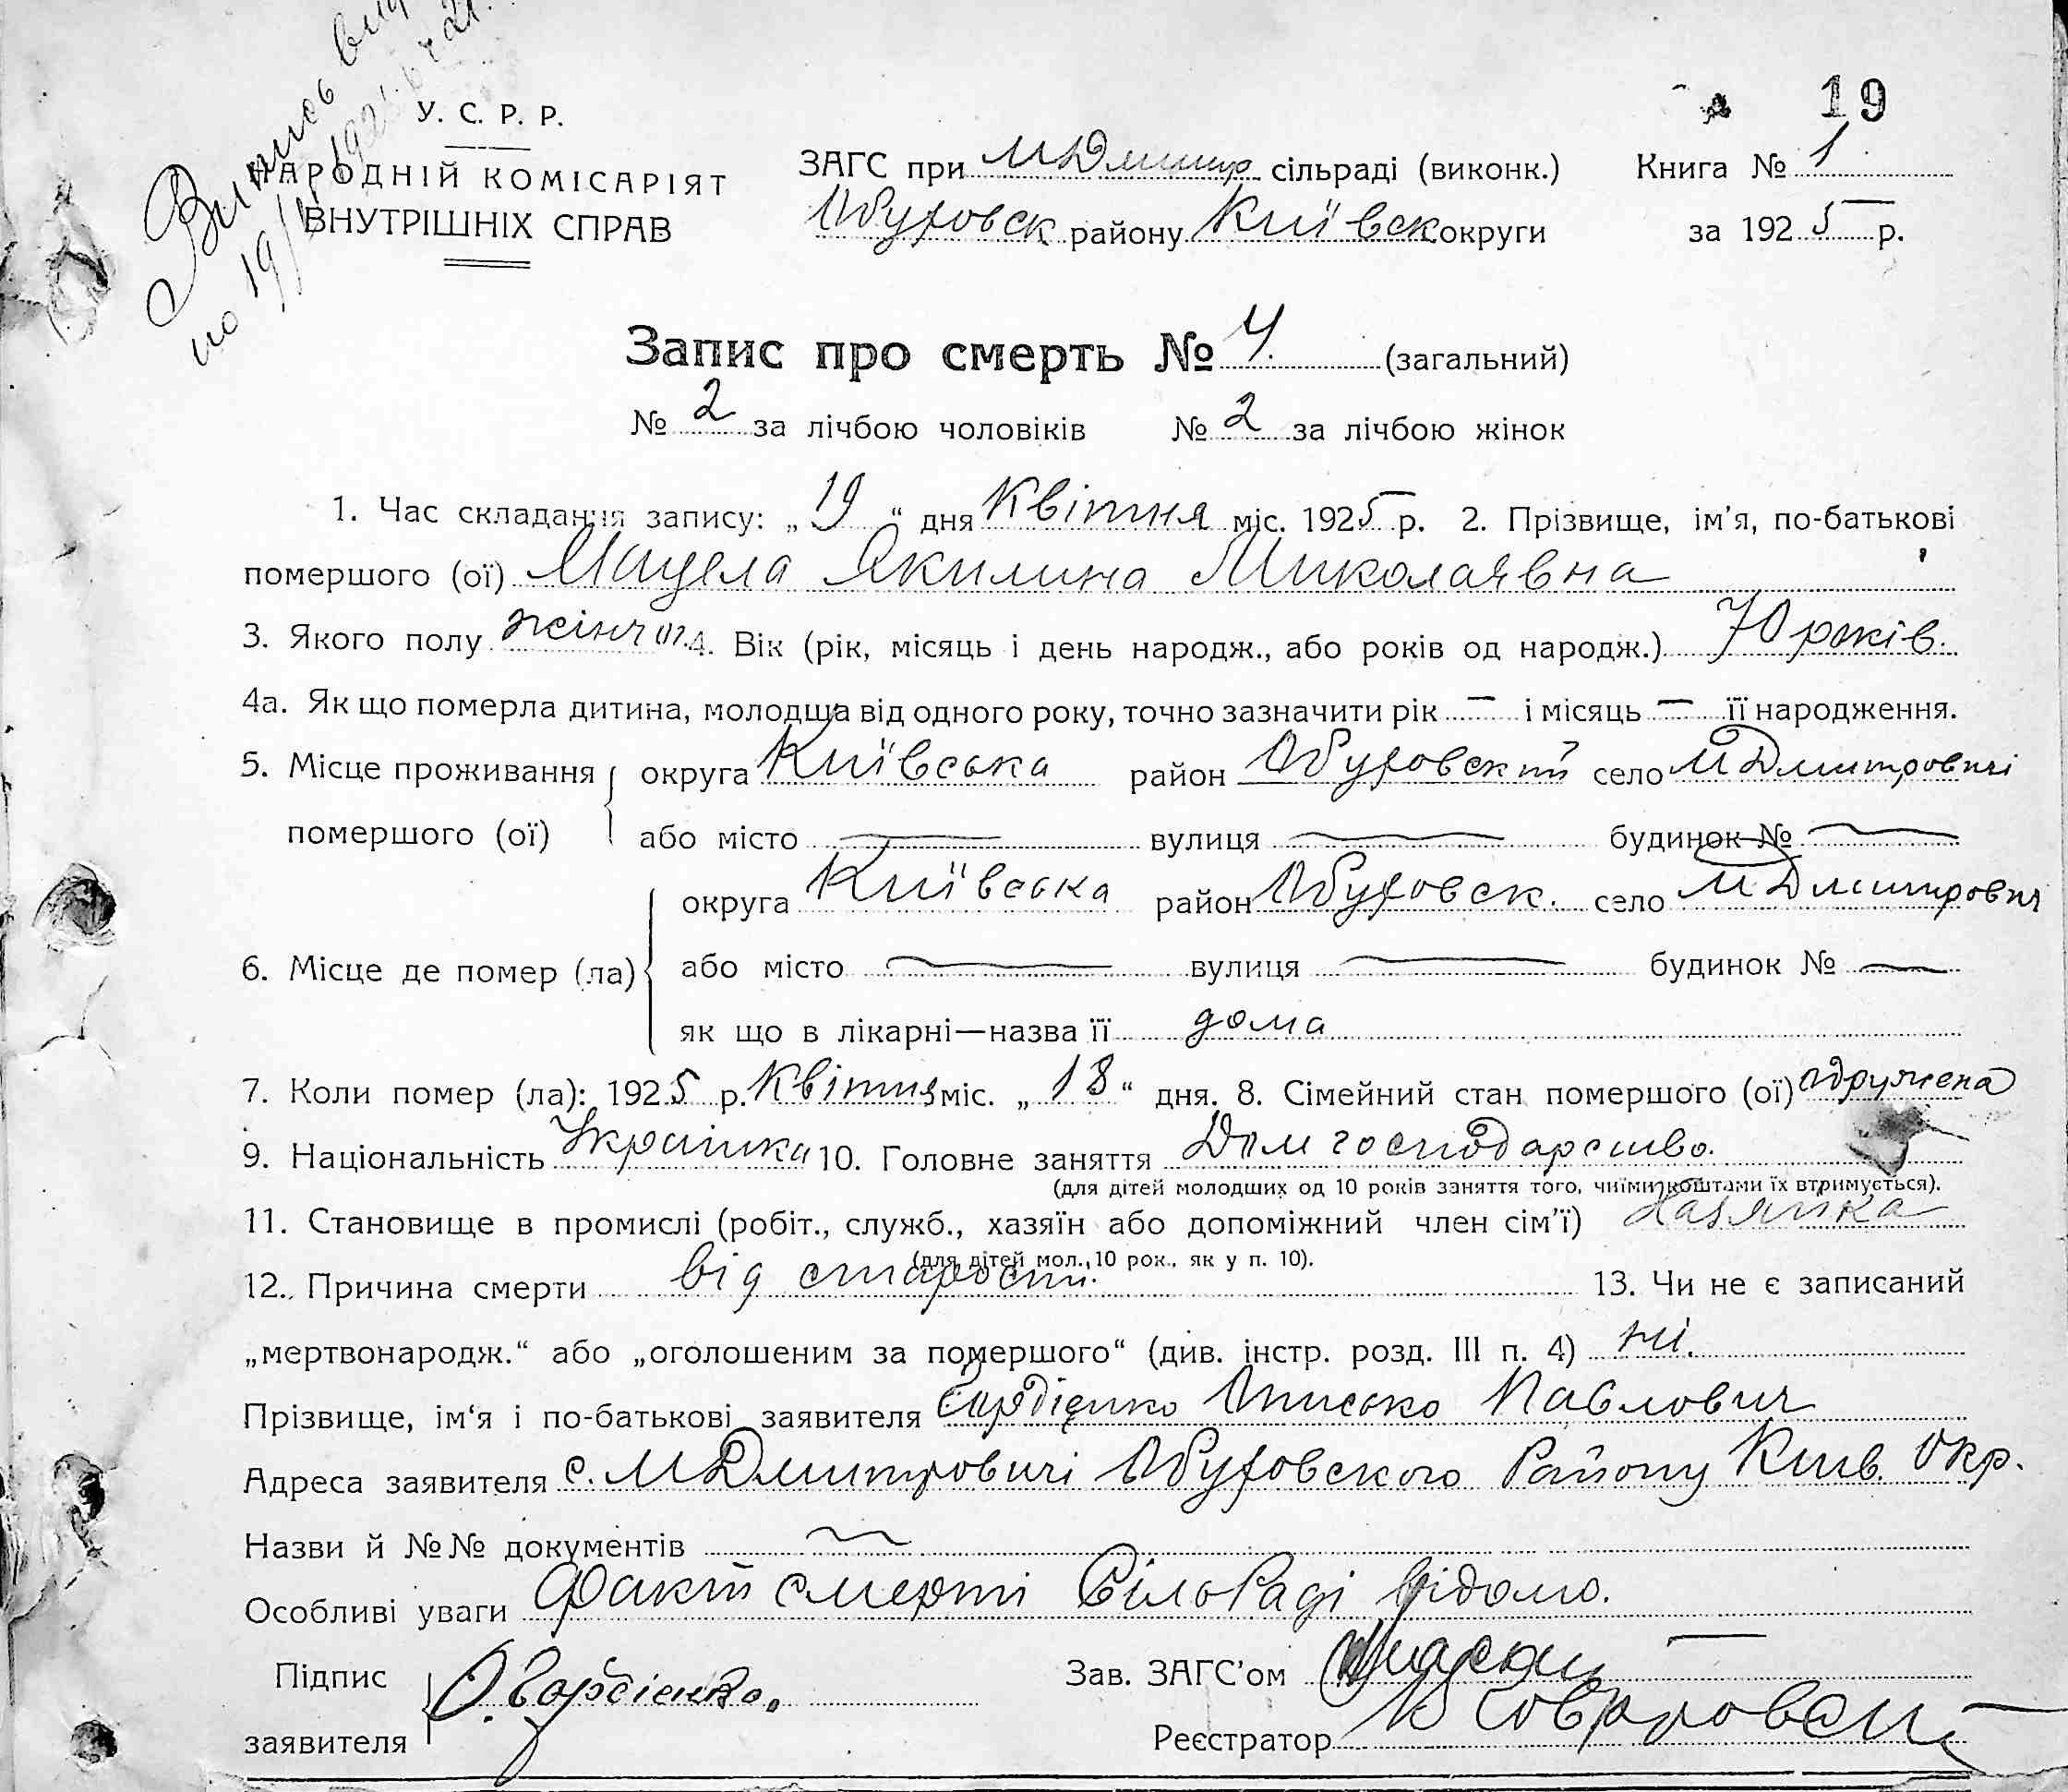 Випись
по 19
19
У. С. Р. Р.
НАРОДНІЙ КОМІСАРІЯТ
ВНУТРІШНІХ СПРАВ
ЗАГС при МДмитр. сільраді (виконк.) Книга № 1
Обуховск району Київськ округи за 1925 р.
Запис про смерть № 4. (загальний)
№ 2 за лічбою чоловіків № 2 за лічбою жінок
1. Час складання запису: „19“ дня Квітня міс. 1925 р. 2. Прізвище, ім’я, по-батькові
помершого (ої) Мацела Якилина Миколаявна
3. Якого полу жіноч. 4. Вік (рік, місяць і день народж., або років од народж.) 70 років.
4а. Як що померла дитина, молодша від одного року, точно зазначити рік — і місяць — її народження.
5. Місце проживання округа Київська район Обуховский село МДмитровичі
помершого (ої) або місто — вулиця — будинок № —
округа Київська район Обуховск. село МДмитрович
6. Місце де помер (ла) або місто — вулиця — будинок № —
як що в лікарні—назва її дома
7. Коли помер (ла): 1925 р. Квітня міс. „18“ дня. 8. Сімейний стан помершого (ої) одружена
9. Національність Українка 10. Головне заняття Дом господарство.
(для дітей молодших од 10 років заняття того, чиїми коштами їх втримується).
11. Становище в промислі (робіт., служб., хазяїн або допоміжний член сім’ї) Хазяйка
(для дітей мол. 10 рок., як у п. 10).
12. Причина смерти від старости. 13. Чи не є записаний
„мертвонародж.“ або „оголошеним за помершого“ (див. інстр. розд. III п. 4) ні.
Прізвище, ім‘я і по-батькові заявителя Онисько Павлович
Адреса заявителя с. МДмитровичі Обуховского Району Київ. Окр.
Назви й №№ документів —
Особливі уваги Факт смерті СілоРаді відомо.
Підпис
заявителя О. Гордієнко.
Зав. ЗАГС’ом
Реєстратор